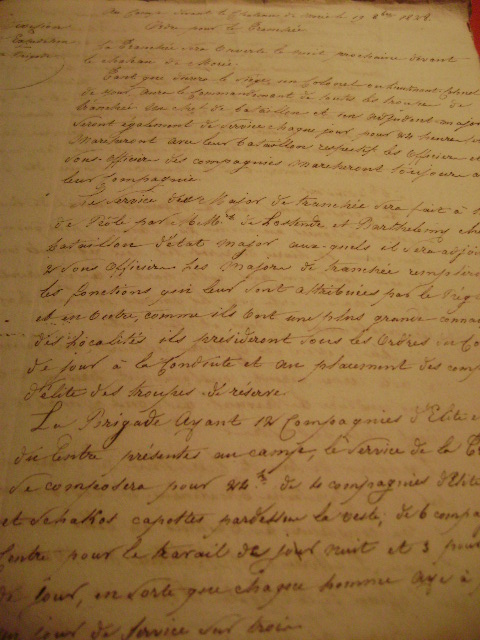 Au Camp devant le Château de Morée le 19 8bre 1828.
Ordre pour la Tranchée
Expédition
Brigade
La Tranchée sera ouverte la nuit prochaine devant
le château de Morée.
Tant que durera le siège, un Colonel ou Lieutenant Colonel
de jour aura le Commandement de toutes les troupes de
tranchée un chef de bataillon et un adjudant major
seront également de service chaque jour pour 24 heures
Marcheront avec leur bataillon respectif les officiers et
sous officiers des compagnies Marcheront toujours
leur Compagnie.
Le service des Major de tranchée sera fait à
de Rôle par MM. de et Barthelemy
bataillon d'état major auxquels il sera adjoint
2 sous officiers Les Majors de tranchée
les fonctions qui leur sont attribuées par le
et en Outre, comme ils ont une plus grande
des Localités ils présideront sous les Ordres du
de jour à la Conduite et au placement des
d'élite des troupes de réserve.
La Brigade Ayant 12 Compagnies d'Elite
du Centre présentes au camp, le Service de la
se composera pour 24 h. de 4 compagnies d'Elite
et Schakos capottes pardessus la veste, de 6
Centre pour le travail de jour nuit et 3 pour
de Jour, en sorte que chaque homme aye
un jour de service sur trois